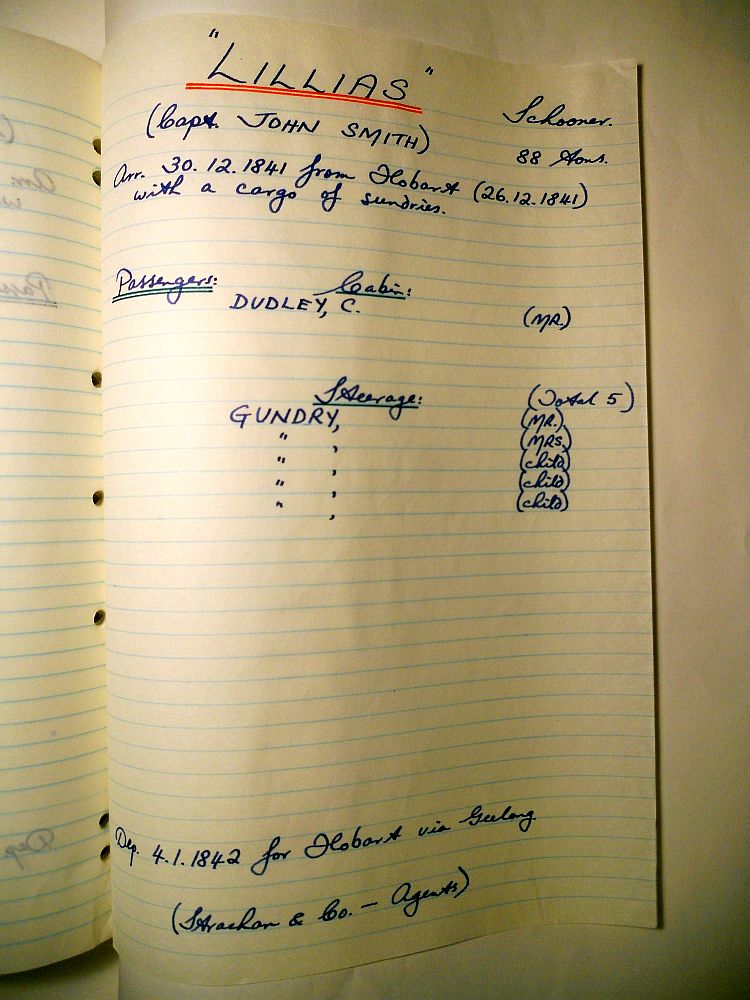 "LILLIAS"
(Capt. JOHN SMITH) Schooner.
88 tons.
Arr. 30.12.1841 from Hobart (26.12.1841)
with a cargo of sundries.
Passengers: Cabin:
DUDLEY, C. (MR.)
Steerage: (Total 5)
GUNDRY, (MR.)
" , (MRS.)
" , (child)
" , (child)
" , (child)
Dep. 4.1.1842 for Hobart via Geelong
(Strachan & Co. — Agents)